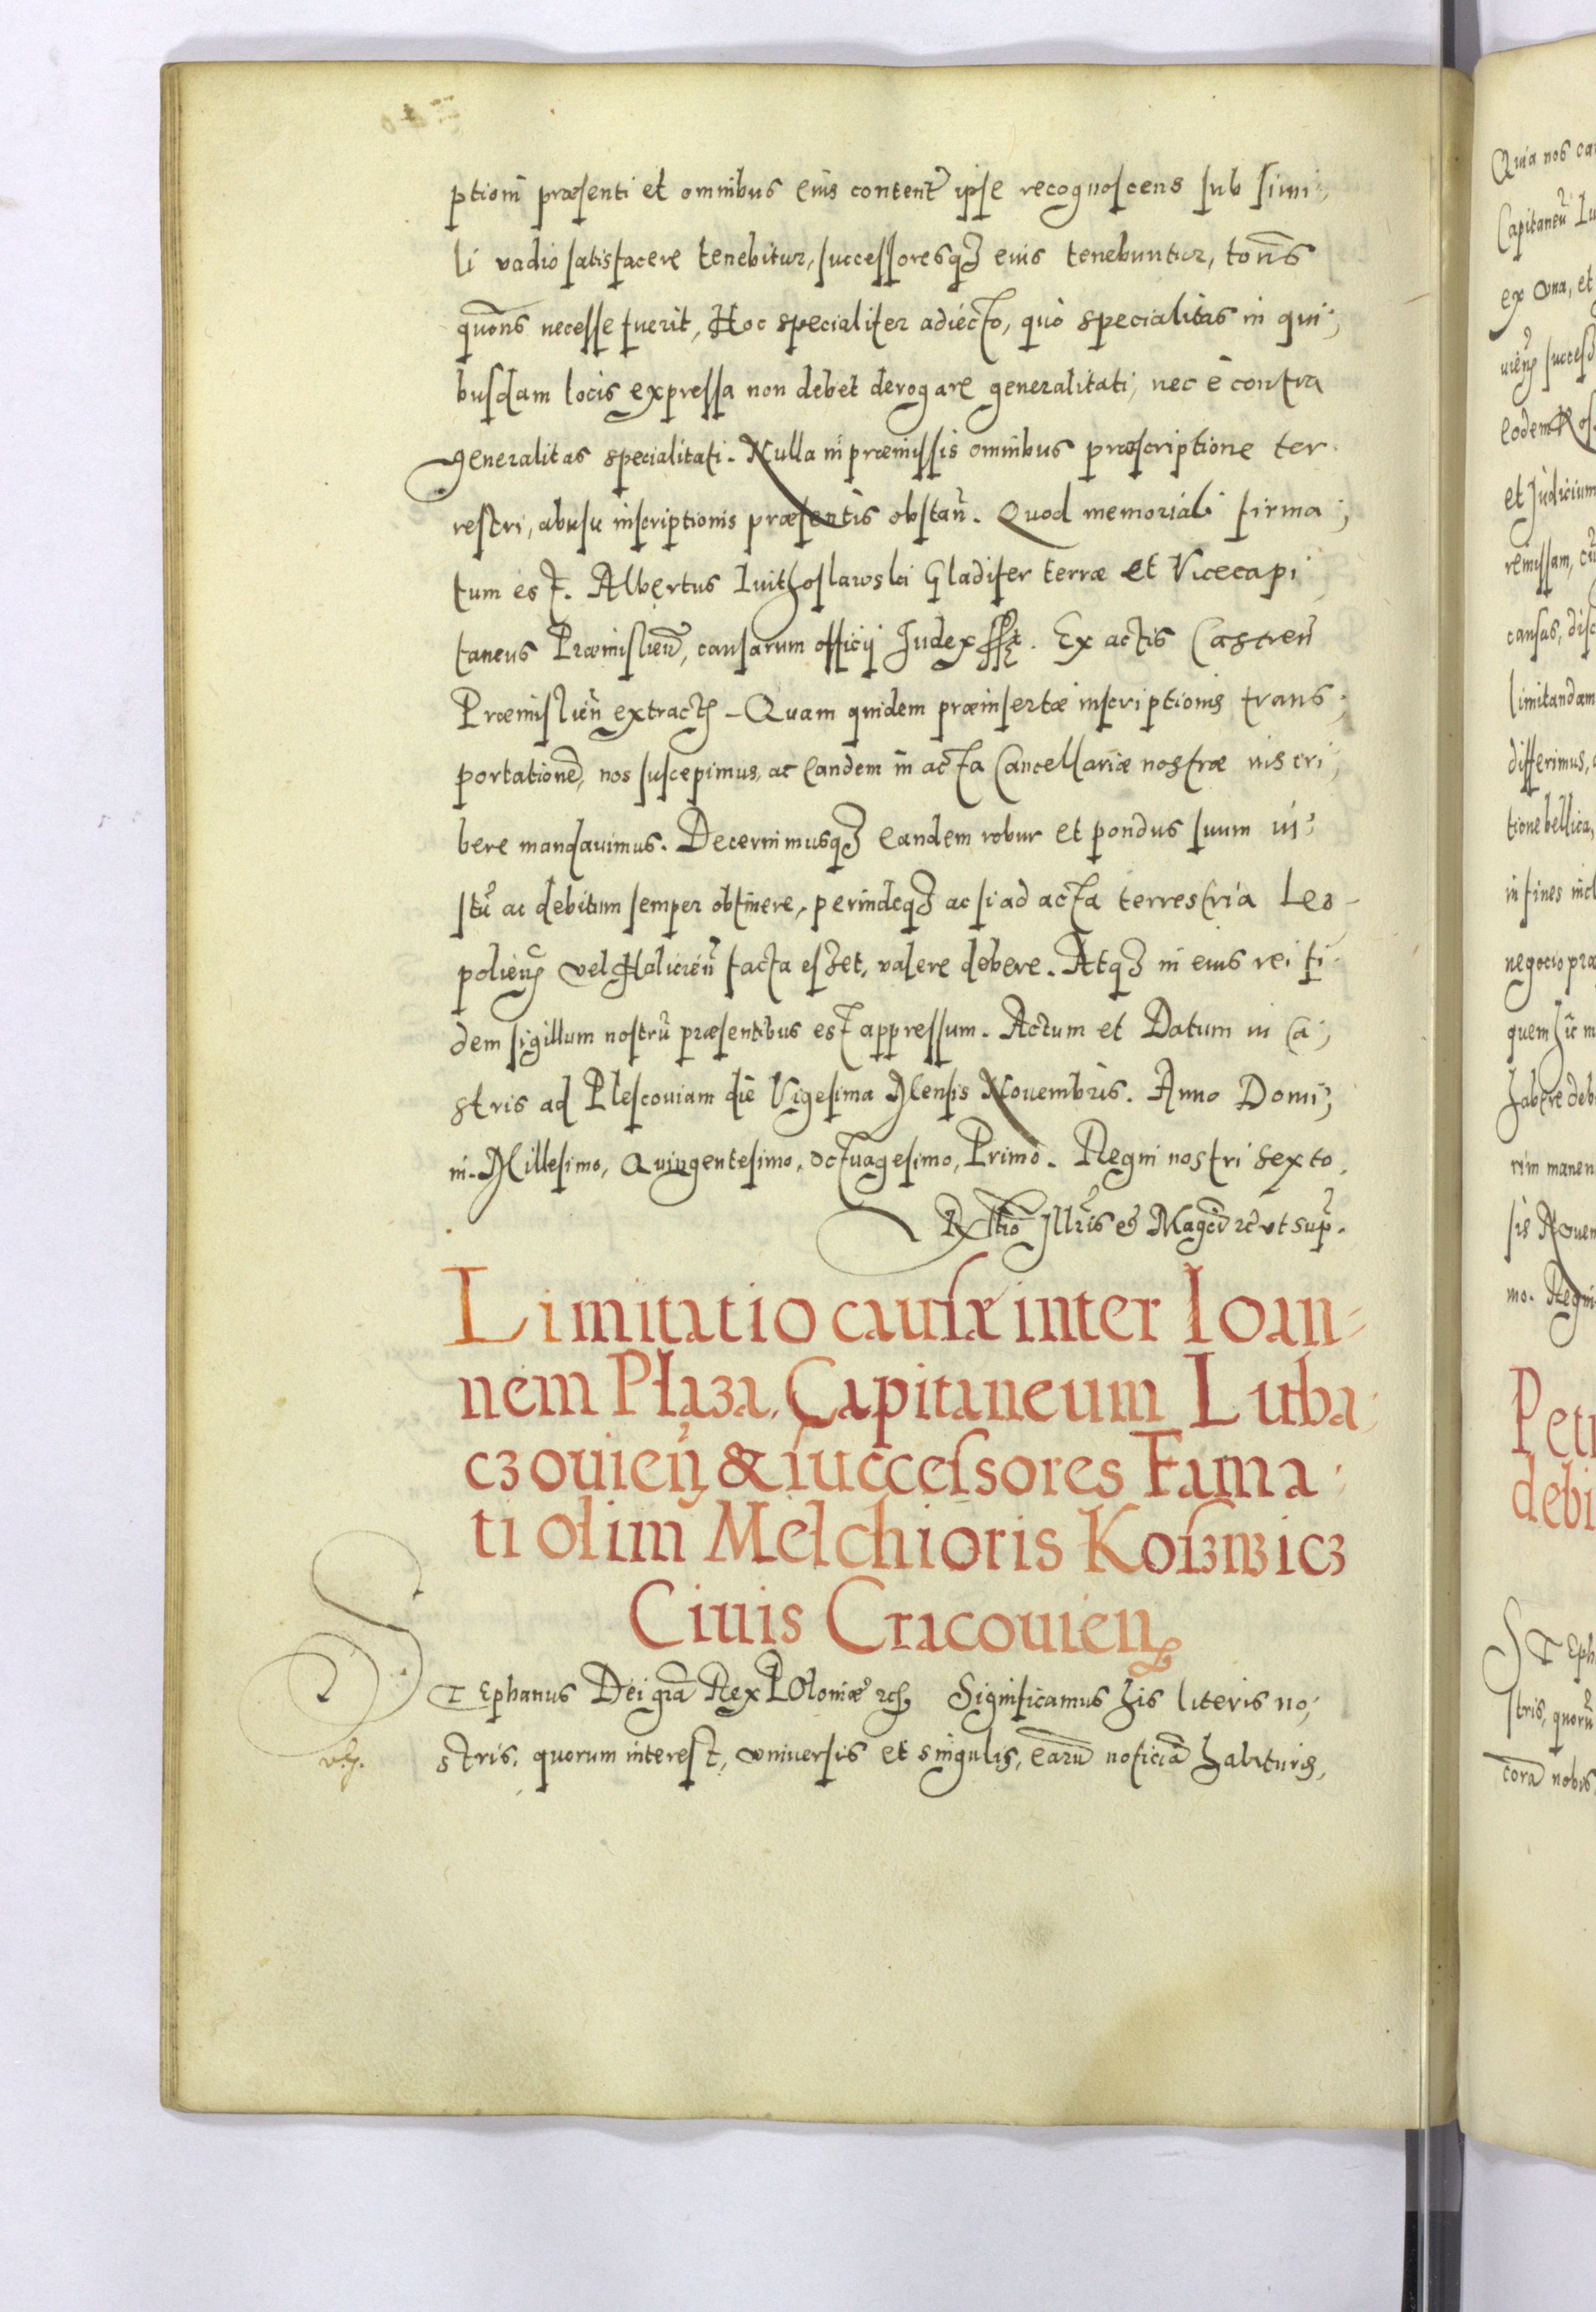 ptioni præsenti et omnibus eius content̃ ipse recognoscens sub simi;
li vadio satisfacere tenebitur, successoresqȝ eius tenebuntur, toñs
quoñs necesse fuerit, Hoc specialiter adiecto, quò specialitas in qui;
busdam locis expressa non debet derogare generalitati, nec è contra
generalitas specialitati. Nulla in præmissis omnibus præscriptione ter
restri, abusu inscriptionis præsentis obstañ. Quod memoriali firma;
tum est. Albertus Gladifer terræ et Vicecapi
taneus Præmislieñ, causarum officij Judex. Ex actis Castreñ
Præmislieñ extract̃ - Quam quidem præinsertæ inscriptionis trans;
portationẽ, nos suscepimus, ac eandem in acta Cancellariæ nostræ inscri;
bere mandauimus. Decernimusqȝ eandem robur et pondus suum iu;
stũ ac debitum semper obtinere, perindeqȝ ac si ad acta terrestria Leo-
polieñ vel Halicieñ facta eszet, valere debere. Atqȝ in eius rei fi
dem sigillum nostrũ præsentibus est appressum. Actum et Datum in Ca;
stris ad Plescouiam die Vigesima Mensis Nouembris. Anno Domi;
ni. Millesimo, Quingentesimo, octuagesimo, Primo. Regni nostri sexto.
Rl̃tio Illr̃is et Magci ut sup̃.
Limitatio causæ inter Ioan-
nem Płaza, Capitaneum Luba
czouieñ & successores Fama
ti olim Melchioris Koszwicz
Ciuis Cracouien
STEphanus Dei grã Rex POloniæ Significamus his literis no;
stris, quorum interest, vniuersis et singulis, earũ noticiã habituris,
Quia nos
Capitaneũ Lu
ex vna, et
eodem
et Judicium
remissam,
causas, disc
limitandam
differimus,
tione bellica,
in fines incl
negocio præ
quem
habere deb
rim manen
sis Nouem
mo. Regni
Petr
debi
STEph
stris, quorũ
corã nobis